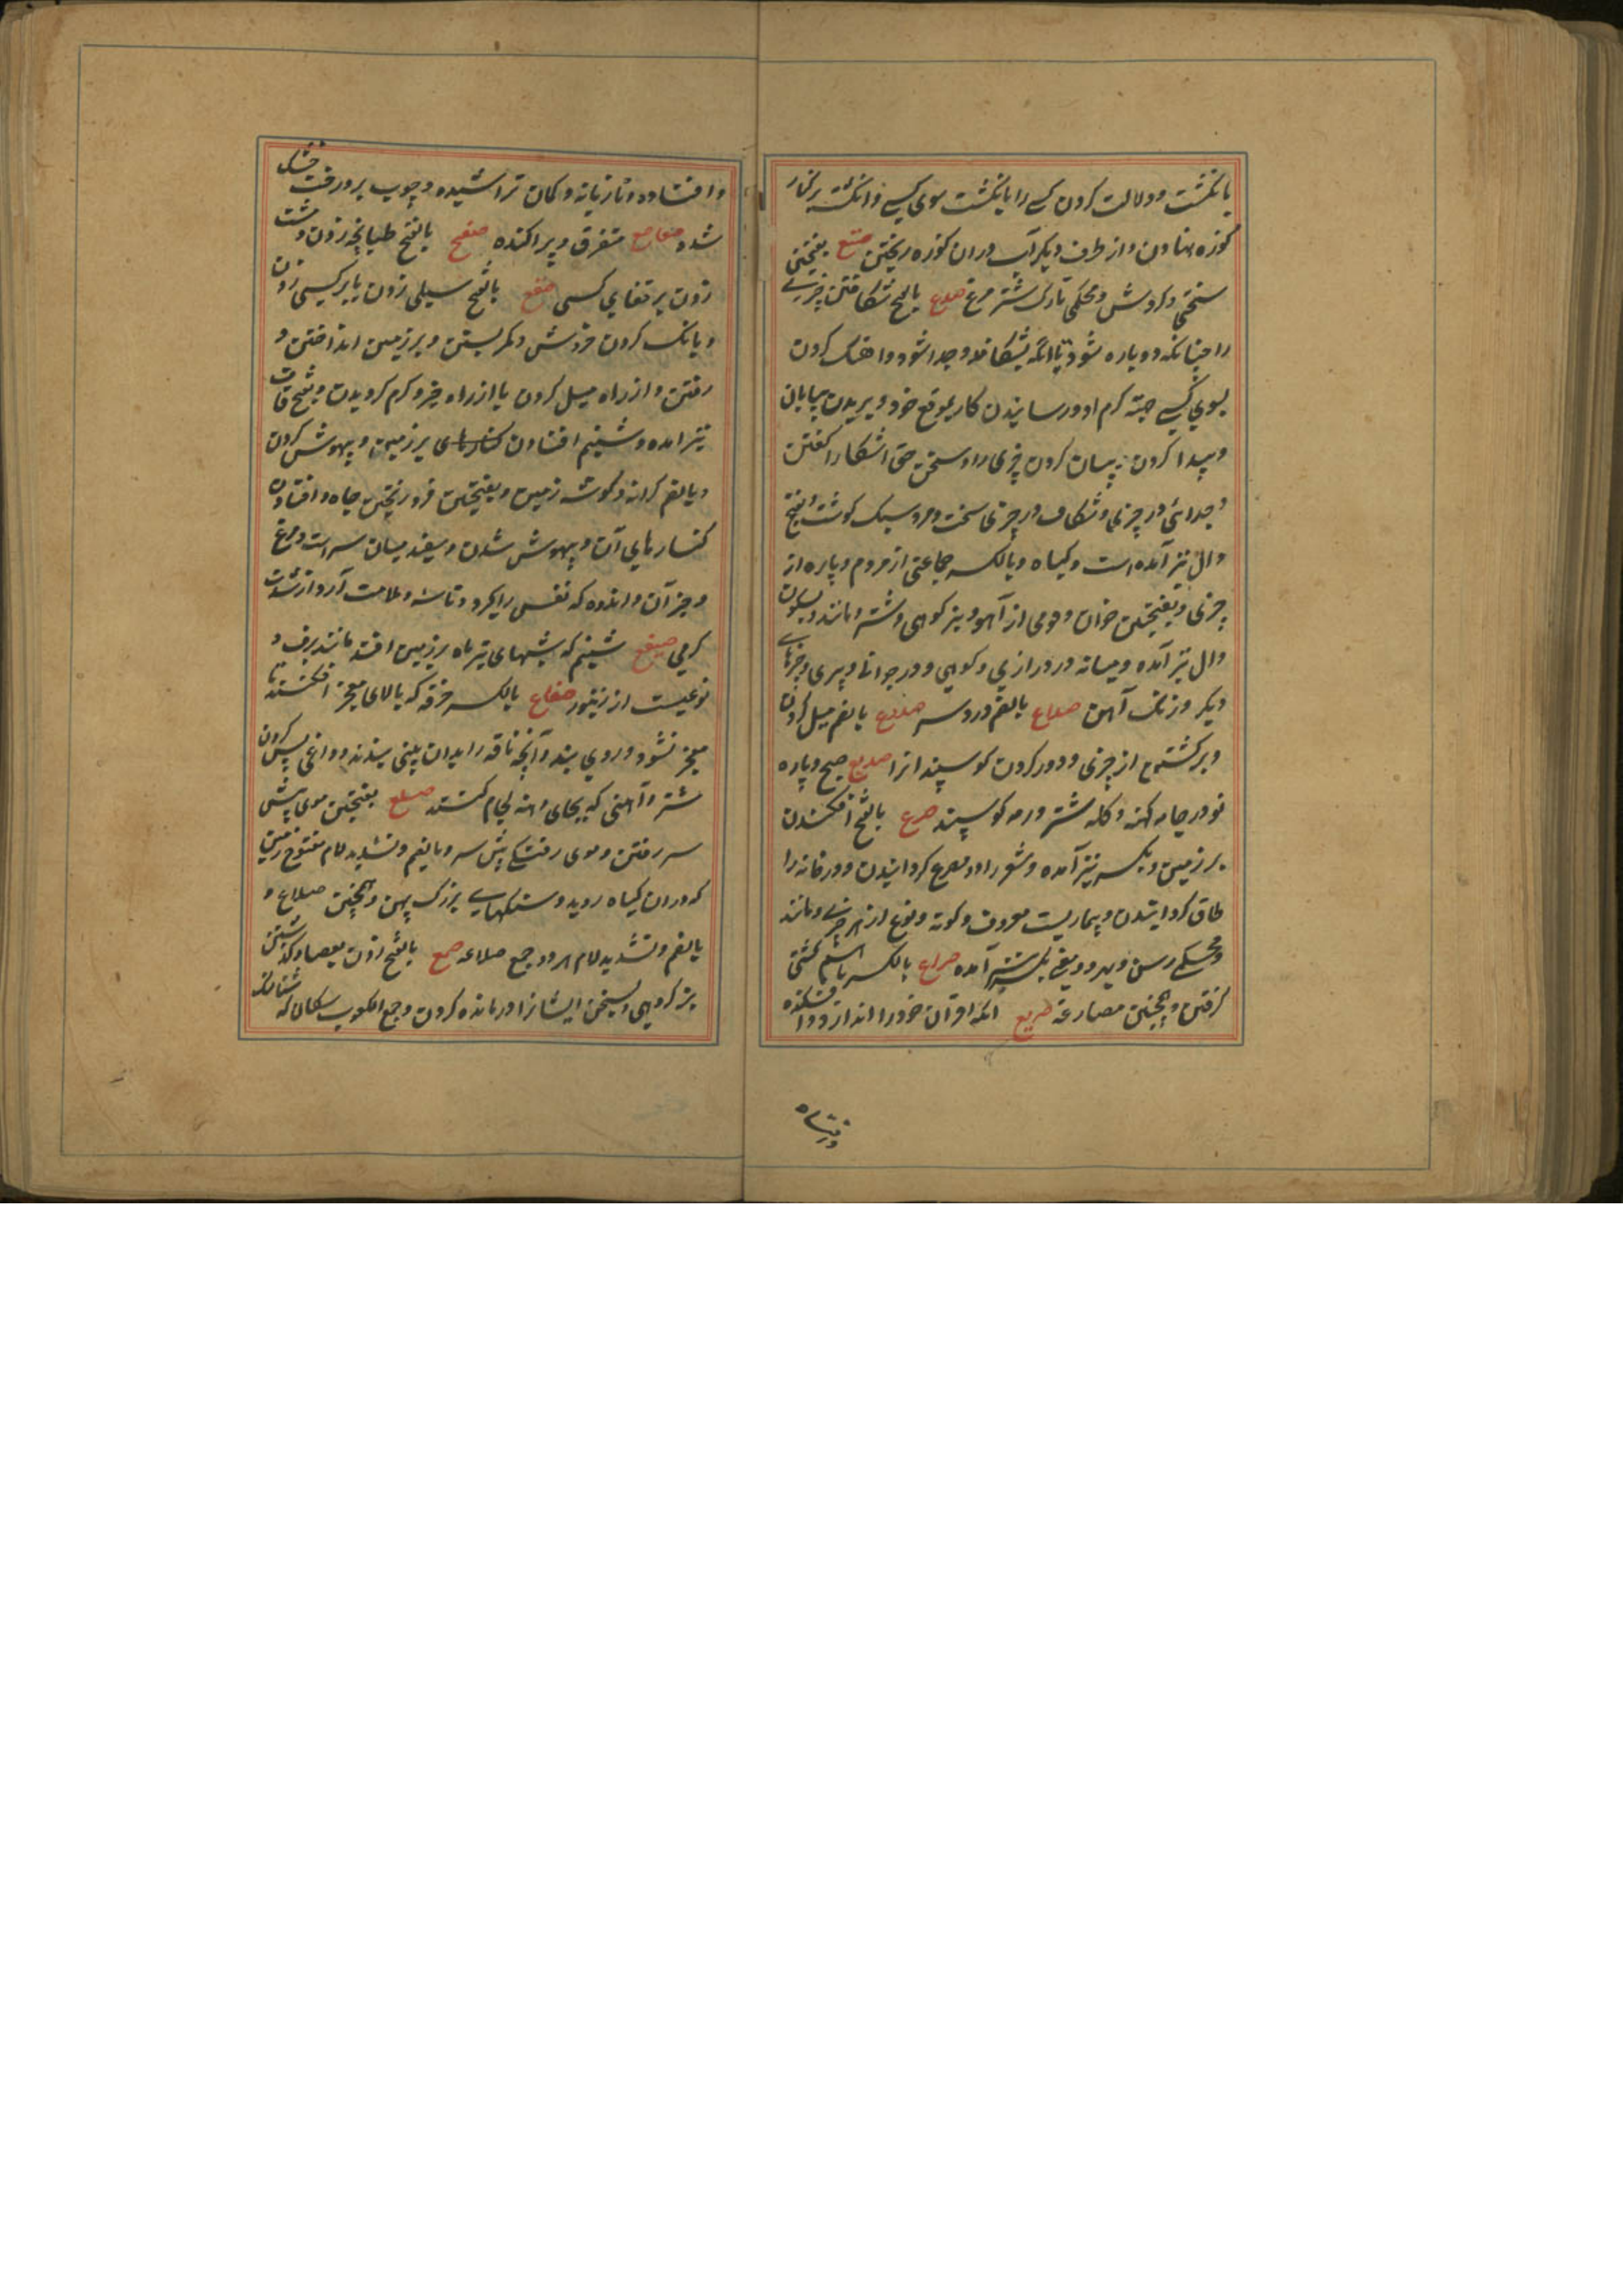 بانگشت و دلالت کردن کسے را بانگشت سوی کسے و انگشت بر کنار
کوزه نهادن و از طرف دیگر آب در ان کوزه ریختن صتع بفتحتین
سختی و محکمی تارک شتر مرغ صدع بالفتح شکافتن چیزے
را چنانکه دو پاره شود یا انکه بشکافد و جدا نشود و اهنگ کردن
بسوی کسے جهت کرم او و رسانیدن کار بموقع خود و بریدن بیابان
و پیدا کردن و بیان کردن چیزی را و سخن حق اشکارا گفتن
و جدائی در چیزی و شکاف در چیزی سخت و مرد سبک گوشت و بفتح
دال نیز آمده است و گیاه و بالکسر جماعتی از مردم و پاره از
چیزی و بفتحتین جوان و قوی از آهو و بز کوهی و شتر و مانند و بسکون
دال نیز آمده و میانه در درازی و کوهی و در جوانی و پیری
دیگر و زنگ آهن صداع بالضم درد سر صدوع بالضم میل کردن
و برگشتن از چیزی و دور کردن کوسپندانرا صدیع صبح و پاره
نو در جامه کهنه و گله شتر و رمه کوسپند صرع بالفتح افکندن
بر زمین و بکسر نیز آمده و شعر را دو مصرع گردانیدن و در خانه را
طاق گردانیدن و بیماریست معروف و گونه و نوع از هر چیزے و مانند
بکسر نیز آمده صراع بالکسر با هم کشتی
گرفتن و همچنین مصارعة صریع انکه اقران خود را اندازد و افکنده
و افتاده و تازیانه و کمان تراشیده و چوب بر درخت خشک
شده صعاصع متفرق و پراکنده صفع بالفتح طپانچه زدن و مشت
زدن بر قفای کسی صقع بالفتح سیلی زدن یا بر کسی زدن
و بانگ کردن خروس و کمر بستن و بر زمین انداختن و
رفتن و از راه میل کردن یا از راه خیر و کرم گردیدن و بفتح قاف
نیز امده و شبنم افتادن بر زمین و بیهوش کردن
و بالضم کرانه و گوشه زمین و بفتحتین فرو ریختن چاه و افتادن
کنارهای آن و بیهوش شدن و سفید میان سر اسپ و مرغ
و جز آن و اندوه که نفس را بگیرد از شدت
گرمی صقیع شبنم که شبهای تیر ماه بر زمین افتد مانند برف و
نوعیست از زنبور صقاع بالکسر خرقه که بالای معجر افکنند تا
معجر نشود و روی بند و آنچه ناقه را بدان بینی بندند و داغی پس گردن
شتر و آهنی که بجای دهنه لجام کنند صلع بفتحتین موی پیش
سر رفتن و موی رفتگے پیش سر و بالضم و تشدید لام مفتوح زمین
که در ان گیاه نروید و سنگهایے بزرگ پهن و همچنین صلاع و
بالضم و تشدید لام هر دو جمع صلاعه صمع بالفتح زدن بعصا و
و بسخن ایشانرا درمانده کردن و جمع الکعوب سگان که